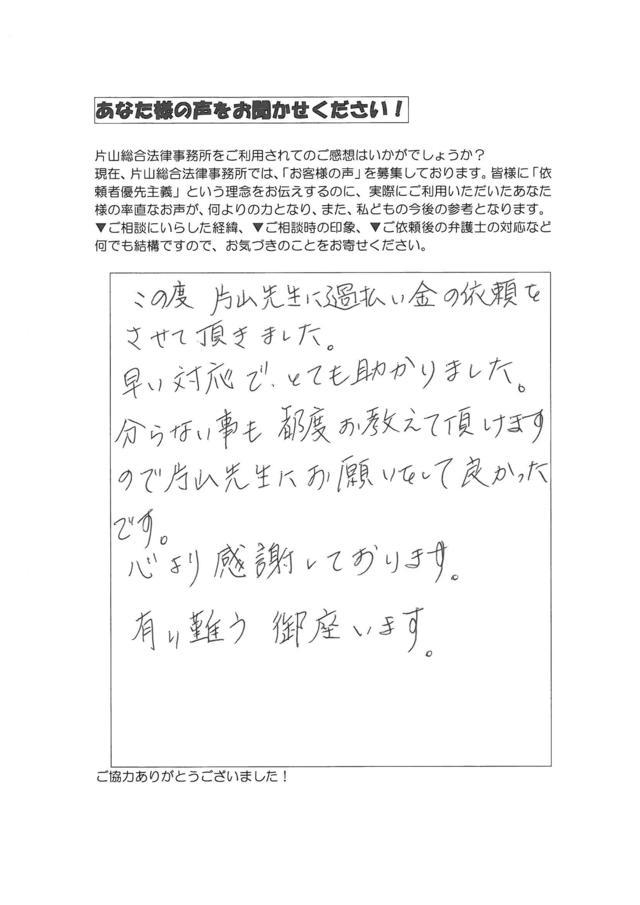 あなた様の声をお聞かせください！
片山総合法律事務所をご利用されてのご感想はいかがでしょうか？
現在、片山総合法律事務所では、「お客様の声」を募集しております。皆様に「依
頼者優先主義」という理念をお伝えするのに、実際にご利用いただいたあなた
様の率直なお声が、何よりの力となり、また、私どもの今後の参考となります。
▼ご相談にいらした経緯、▼ご相談時の印象、▼ご依頼後の弁護士の対応など
何でも結構ですので、お気づきのことをお寄せください。
この度 片山先生に過払い金の依頼を
させて頂きました。
早い対応で、とても助かりました。
分らない事も 都度お教えて頂けます
ので片山先生にお願いをして良かった
です。
心より感謝しております。
有り難う 御座います。
ご協力ありがとうございました！